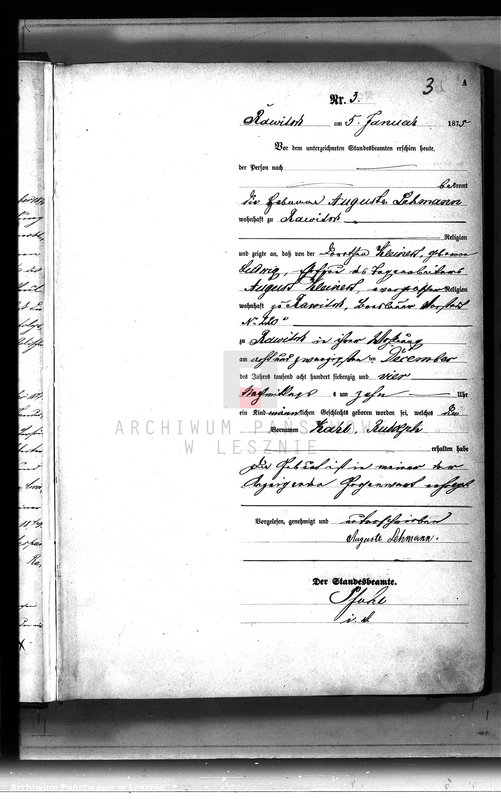 3
A
Nr. 3.
Rawitsch am 5. Januar 1875
Vor dem unterzeichneten Standesbeamten erschien heute,
der Person nach
bekannt
die Hebamme Auguste Lehmann
wohnhaft zu Rawitsch
Religion
und zeigte an, daß von der Dorothea Kleinert, geborene
Ehefrau des Tagearbeiters
August Kleinert, evangelischer Religion
wohnhaft zu Rawitsch, Breslauer Vorstadt
No 220
zu Rawitsch in ihrer Wohnung
am acht und zwanzigsten ten December
des Jahres tausend acht hundert siebenzig und vier
Nachmittags um zehn Uhr
ein Kind männlichen Geschlechts geboren worden sei, welches die
Vornamen Karl, Rudolph
erhalten habe
Die Geburt ist in meiner der
Anzeigenden Gegenwart erfolgt
Vorgelesen, genehmigt und unterschrieben
Auguste Lehmann.
Der Standesbeamte.
ARCHIWUM PAŃSTWOWE
W LESZNIE
Archiwum Państwowe w Lesznie